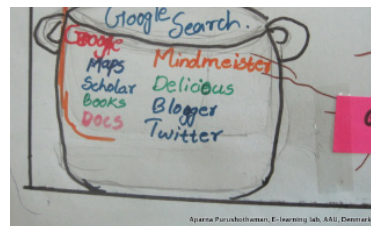 Google Search.
Google
Maps
Scholar
Books
Docs
Mindmeister
Delicious
Blogger
Twitter
Aparna Purushothaman, E-learning lab, AAU, Denmark